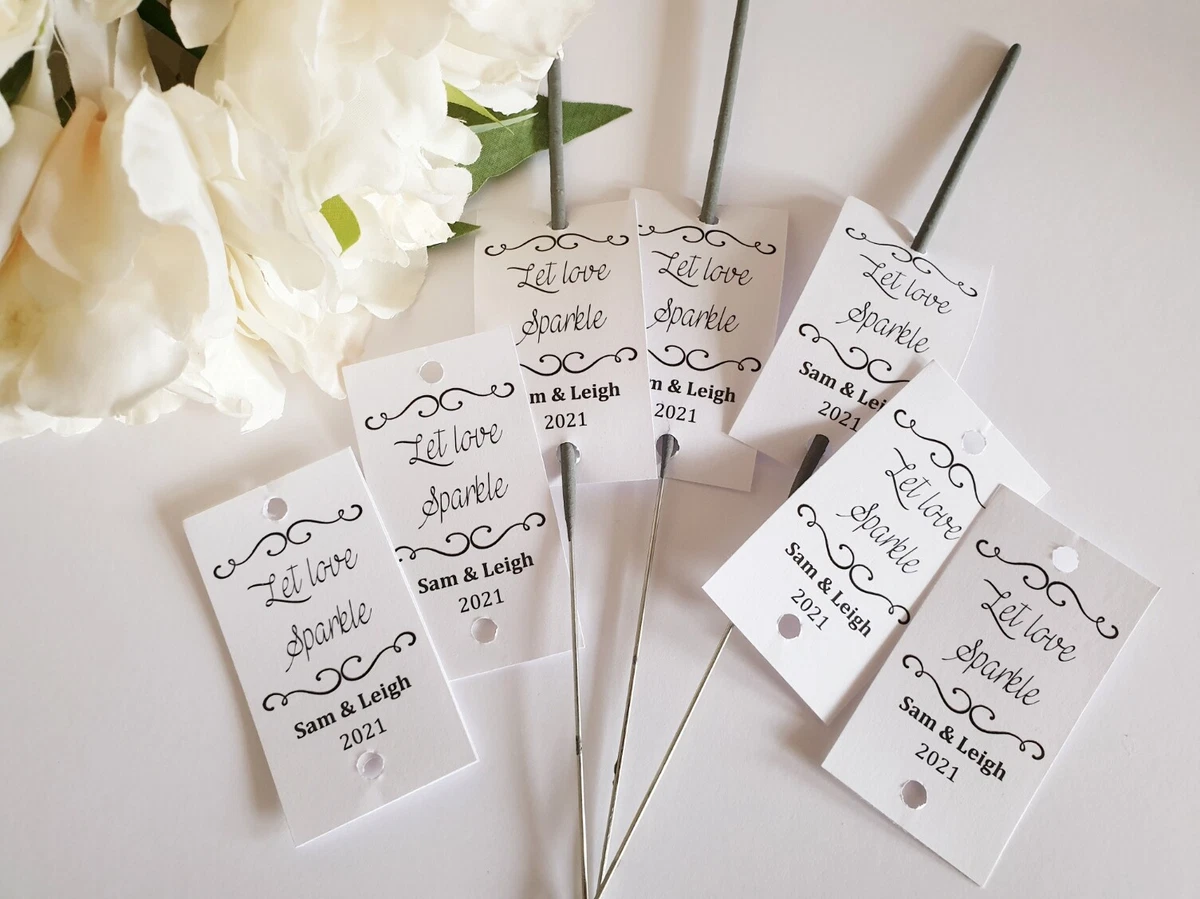 Let love
Sparkle
Sam & Leigh
2021
Let love
Sparkle
Sam & Leigh
2021
Let love
Sparkle
m & Leigh
2021
Let love
Sparkle
m & Leigh
2021
Let love
Sparkle
Sam & Lei
2021
Let love
Sparkle
Sam & Leigh
2021
Let love
Sparkle
Sam & Leigh
2021